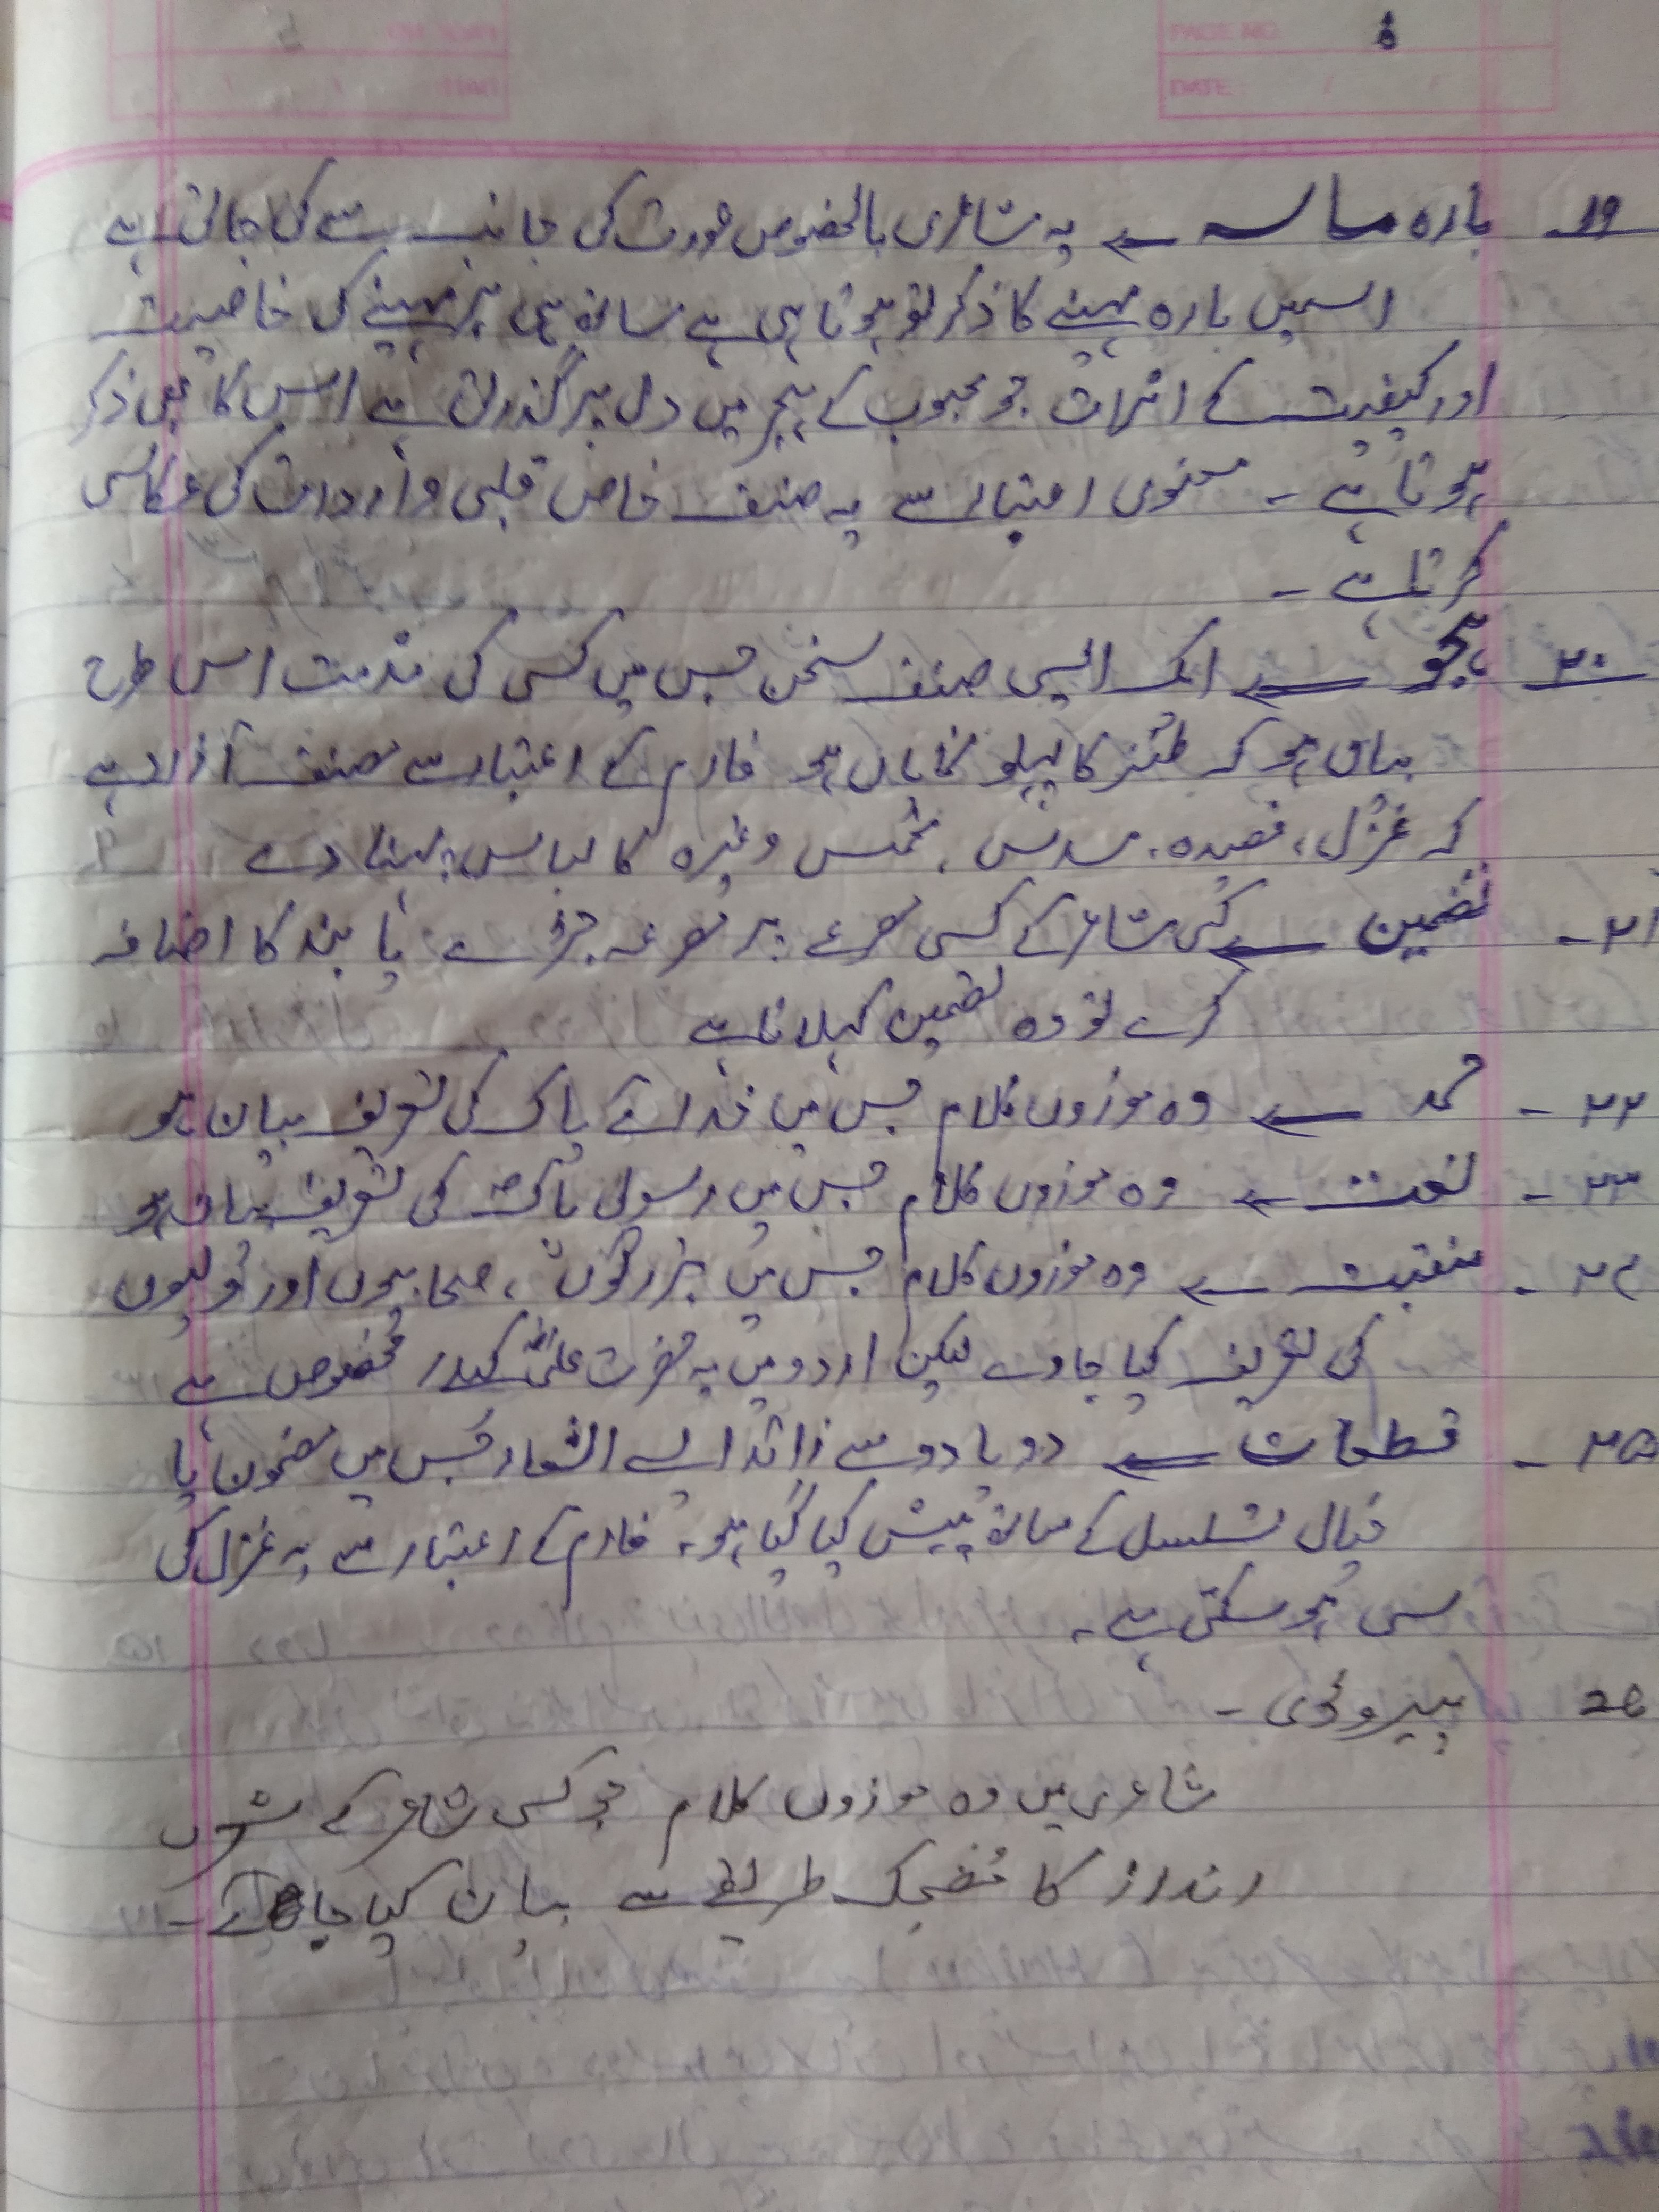 PAGE NO.
DATE: / /
۱۹۔ بارہ ماسہ ← یہ شاعری بالخصوص عورت کی جانب سے کی جاتی ہے
اسمیں بارہ مہینے کا ذکر تو ہوتا ہی ہے ساتھ ہی ہر مہینے کی خاصیت
اور کیفیت کے اثرات جو محبوب کے ہجر میں دل پر گذرتی ہے اس کا بھی ذکر
ہوتا ہے ۔ معنوی اعتبار سے یہ صنف خاص قلبی واردات کی عکاسی
کرتا ہے ۔
۲۰۔ ہجو ← ایک ایسی صنف سخن جس میں کسی کی مذمت اس طرح
بیاں ہو کہ طنز کا پہلو نمایاں ہو فارم کے اعتبار سے صنف آزاد ہے
کہ غزل، قصیدہ، مسدس، مخمس وغیرہ کا لباس پہنا دے
۲۱۔ تضمین ← کسی شاعر کے کسی مصرعے پر مصرعہ جڑے یا بند کا اضافہ
کرے تو وہ تضمین کہلاتا ہے
۲۲۔ حمد ← وہ موزوں کلام جس میں خدائے پاک کی تعریف بیان ہو
۲۳۔ نعت ← وہ موزوں کلام جس میں رسول پاکؐ کی تعریف بیان ہو
۲۴۔ منقبت ← وہ موزوں کلام جس میں بزرگوں، صحابیوں اور ولیوں
کی تعریف کیا جاوے لیکن اردو میں یہ حضرت علیؓ کیلئے مخصوص ہے
۲۵۔ قطعات ← دو یا دو سے زائد ایسے اشعار جس میں مضمون یا
خیال تسلسل کے ساتھ پیش کیا گیا ہو۔ فارم کے اعتبار سے یہ غزل کی
سی ہو سکتی ہے۔
26 پیروڈی ۔
شاعری میں وہ موزوں کلام جو کسی شاعر کے
انداز کا مضحک طریقے سے بیان کیا جائے۔